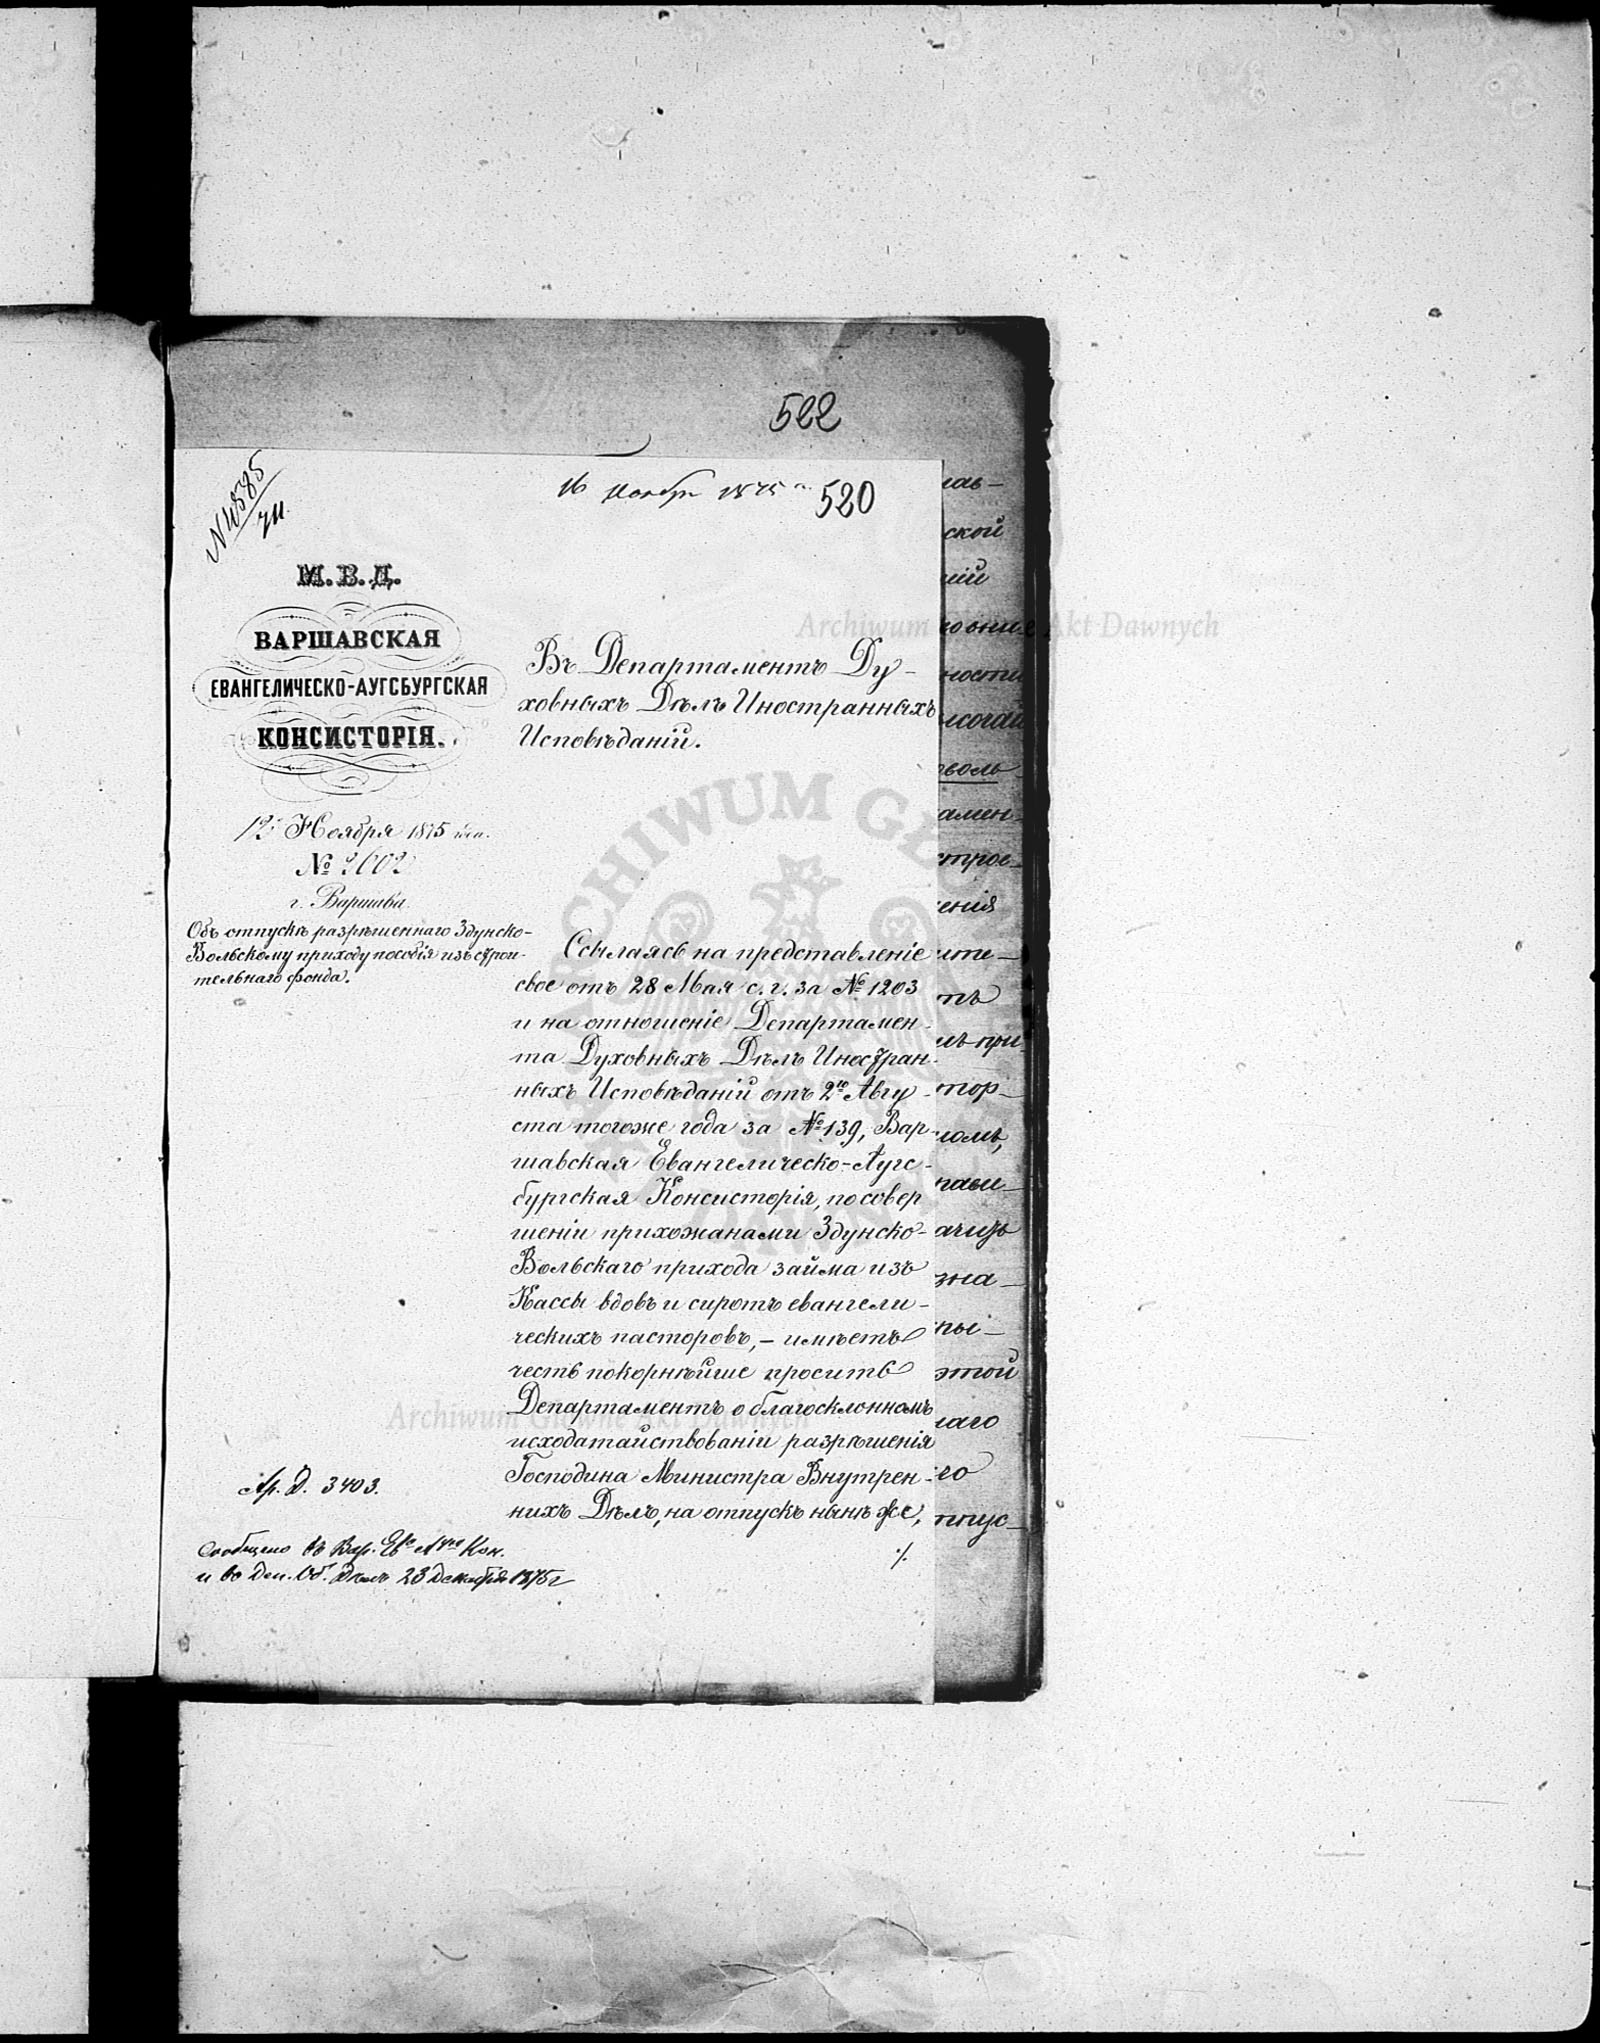 522
16 Ноября 1875 г. 520
М. В. Д.
ВАРШАВСКАЯ
ЕВАНГЕЛИЧЕСКО-АУГСБУРГСКАЯ
КОНСИСТОРІЯ.
12 Ноября 1875 года.
№ 2602
г. Варшава
Объ отпускѣ разрѣшеннаго Здунско-
Вольскому приходу пособія изъ строи-
тельнаго фонда.
Въ Департаментъ Ду-
ховныхъ Дѣлъ Иностранныхъ
Исповѣданій.
Ссылаясь на представленіе
свое отъ 28 Мая с. г. за № 1203
и на отношеніе Департамен-
та Духовныхъ Дѣлъ Иностран-
ныхъ Исповѣданій отъ 2го Авгу-
ста тогоже года за № 139, Вар-
шавская Евангелическо-Аугс-
бургская Консисторія, по совер
шеніи прихожанами Здунско-
Вольскаго прихода займа изъ
Кассы вдовъ и сиротъ евангели-
ческихъ пасторовъ, – имѣетъ
честь покорнѣйше просить
Департаментъ о благосклонномъ
исходатайствованіи разрѣшенія
Господина Министра Внутрен-
нихъ Дѣлъ, на отпускъ нынѣ же,
./.
Ар. Д. 3403.
Сообщено въ Вар. Ев. Кон.
и во Деп. Об. Дѣлъ 23 Декабря 1875 г
лав-
ской
ній
ности
оволь
амен-
строе-
енія
ите-
тъ
тор-
ломъ,
зна-
этой
наго
го
тпус-
Archiwum Główne Akt Dawnych
ARCHIWUM GŁÓWNE
Archiwum Główne Akt Dawnych